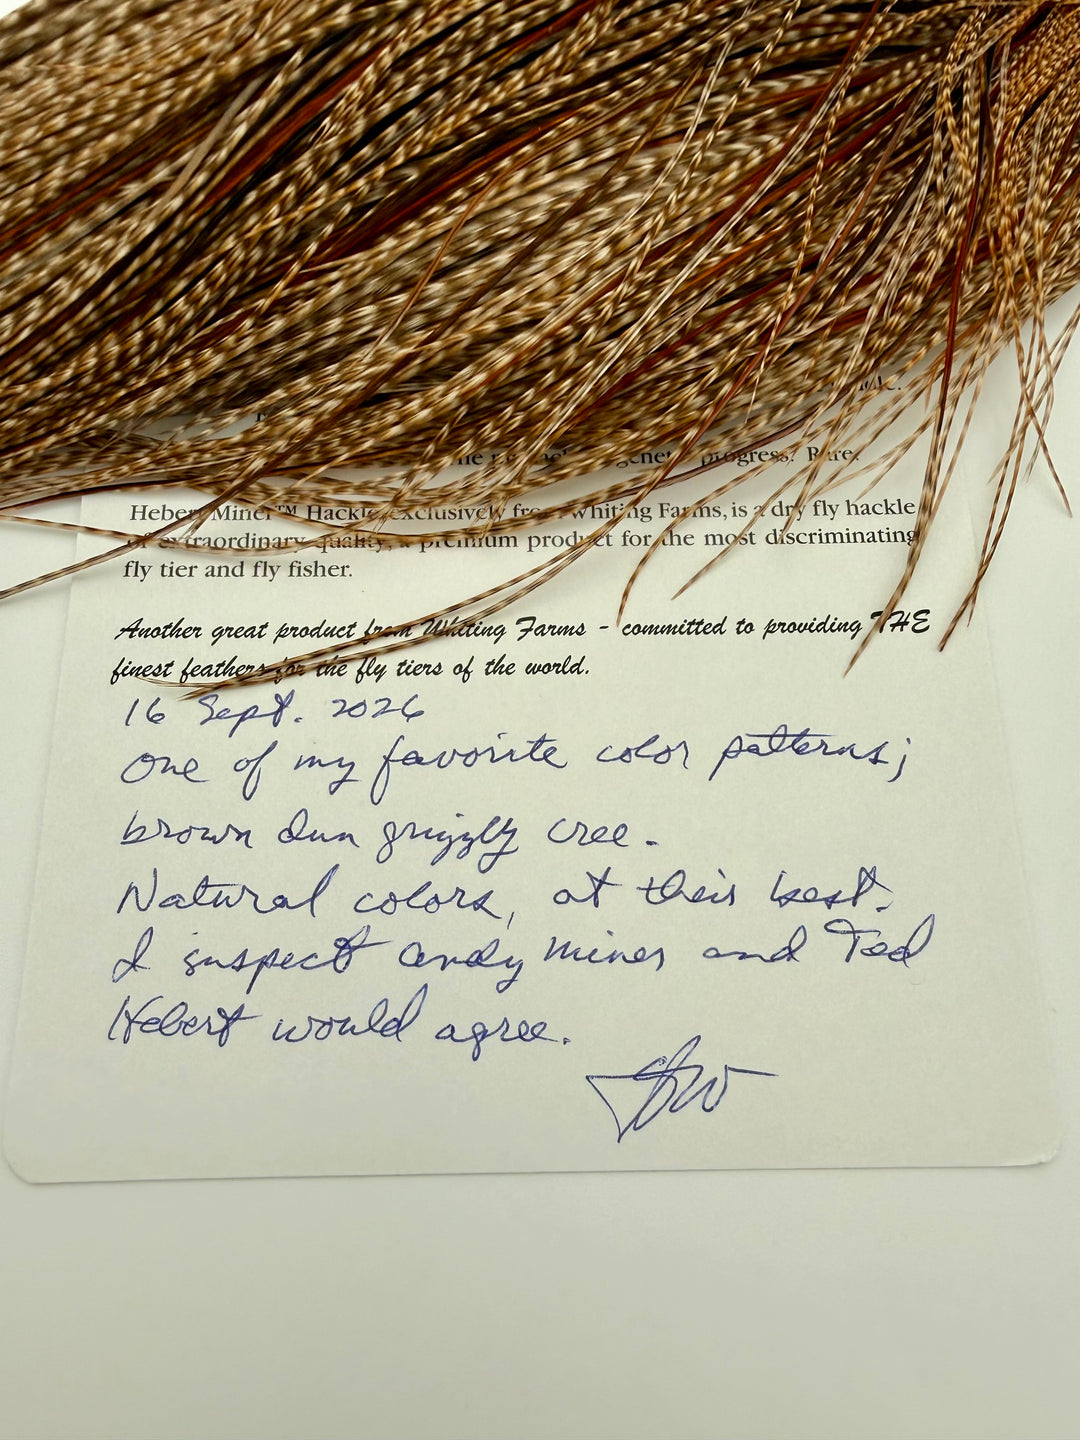 progress? Rare.
Hebert Miner™ Hackle, exclusively from Whiting Farms, is a dry fly hackle
of extraordinary quality, a premium product for the most discriminating
fly tier and fly fisher.
Another great product from Whiting Farms - committed to providing THE
finest feathers for the fly tiers of the world.
16 Sept. 2026
One of my favorite color patterns;
brown dun grizzly cree.
Natural colors, at their best.
I suspect Andy Miner and Ted
Hebert would agree.